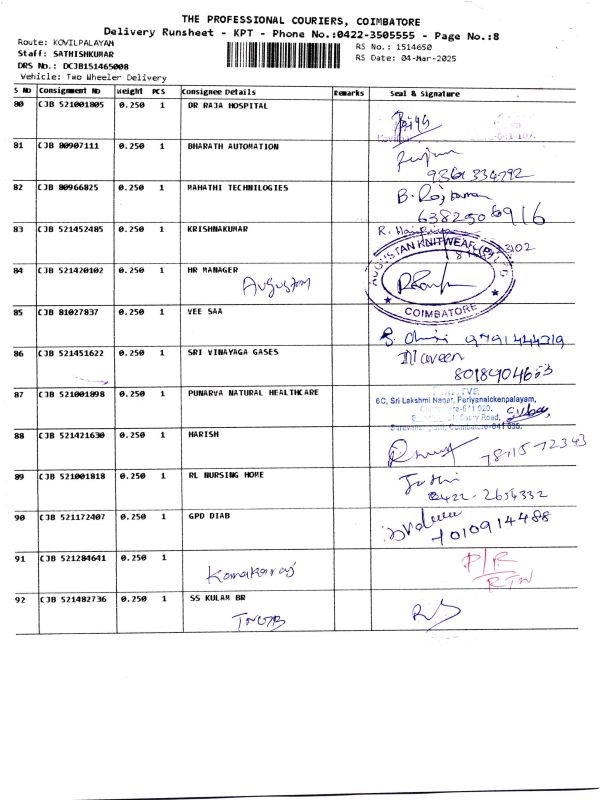 THE PROFESSIONAL COURIERS, COIMBATORE
Delivery Runsheet - KPT - Phone No.:0422-3505555 - Page No.:8
Route: KOVILPALAYAM
Staff: SATHISHKUMAR
DRS No.: DCJB151465008
Vehicle: Two Wheeler Delivery
RS No.: 1514650
RS Date: 04-Mar-2025
S NO Consignment No Weight PCS Consignee Details Remarks Seal & Signature
80 CJB 521001805 0.250 1 DR RAJA HOSPITAL
81 CJB 80907111 0.250 1 BHARATH AUTOMATION
9361334792
82 CJB 80966825 0.250 1 MAHATHI TECHNILOGIES
83 CJB 521452485 0.250 1 KRISHNAKUMAR
84 CJB 521420102 0.250 1 HR MANAGER
Auguston
AUGUSTAN KNITWEAR (P) LTD
COIMBATORE
85 CJB 81027837 0.250 1 VEE SAA
9791444319
86 CJB 521451622 0.250 1 SRI VINAYAGA GASES
Naveen
8018904653
87 CJB 521001898 0.250 1 PUNARVA NATURAL HEALTHCARE
6C, Sri Lakshmi Nagar, Periyanaickenpalayam,
88 CJB 521421630 0.250 1 HARISH
89 CJB 521001818 0.250 1 RL NURSING HOME
0422-2654332
90 CJB 521172407 0.250 1 GPD DIAB
91 CJB 521284641 0.250 1
Kanakaraj
P/R
RTN
92 CJB 521482736 0.250 1 SS KULAM BR
TNGB